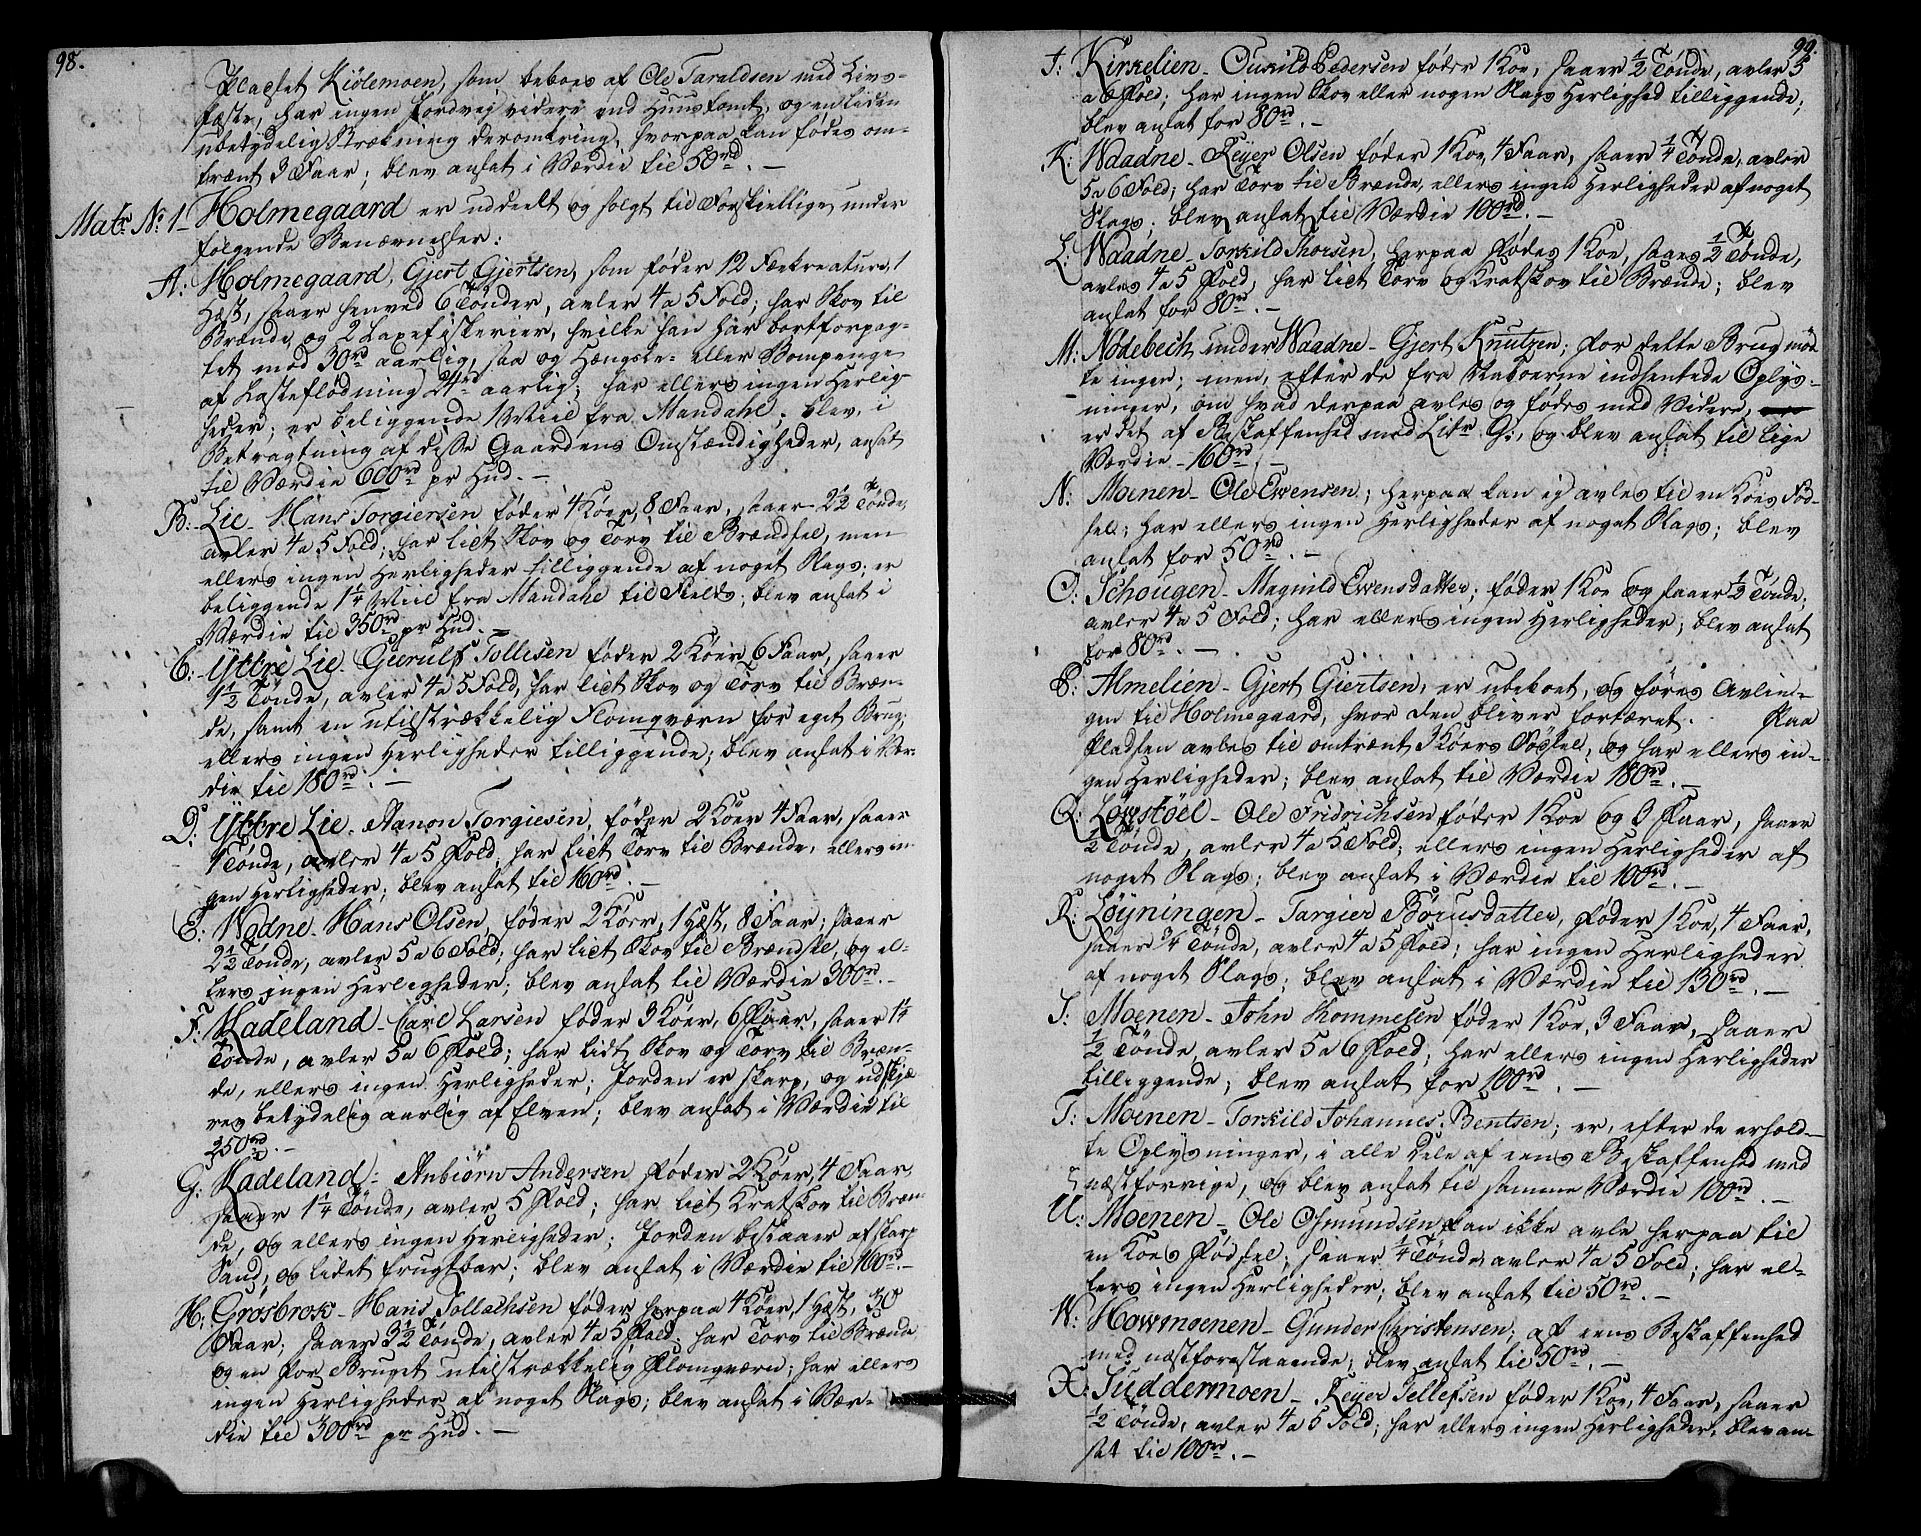 98.
Pladset Kiölemoen, som beboes af Ole Taraldsen med Livs-
fæste, har ingen Jordvej videre end Huustomt, og en liden
ubetydelig Strækning deromkring, hvorpaa kan fødes om-
trent 3 Faar; blev ansat i Værdie til 50rd. —
Matr. No. 1 - Holmegaard er uddeelt og solgt til Forskiellige, under
følgende Benævnelser:
A: Holmegaard, Gjert Gjertsen, som føder 12 Fækreature, 1
Hæst, saaer henved 6 Tønder, avler 4 a 5 Fold; har Skov til
Brænde, og 2 Laxefiskerier, hvilke han har bortforpag-
tet med 30rd aarlig, saa og Hængsle- eller Bompenge
af Lasteflødning 24rd aarlig; har ellers ingen Herlig-
heder; er beliggende 1 Miil fra Mandahl; blev, i
Betragtning af disse Gaardens Omstændigheder, ansat
til Værdie 600rd pr Hud. —
B: Lie - Hans Torgiersen føder 4 Køer, 8 Faar, saaer 2½ Tønde,
avler 4 a 5 Fold; har lidt Skov og Torv til Brændsel, men
ellers ingen Herligheder tilliggende af noget Slags; er
beliggende 1¼ Miil fra Mandahl til Fields; blev ansat i
Værdie til 350rd pr Hud. —
C: Yttre Lie - Gierulf Tollesen føder 2 Køer, 6 Faar, saaer
1½ Tønde, avler 4 a 5 Fold, har lidt Skov og Torv til Bræn-
de, samt en utilstrækkelig Flomqværn for eget Brug;
ellers ingen Herligheder tilliggende; blev ansat i Vær-
die til 180rd. —
D: Yttre Lie - Aanon Torgiesen, føder 2 Køer 4 Faar, saaer
1 Tønde, avler 4 a 5 Fold, har lidt Torv til Brænde, ellers in-
gen Herligheder; blev ansat til 160rd. —
E: Wodne - Hans Olsen, føder 2 Køer, 1 Hæst, 8 Faar; saaer
2½ Tønde, avler 5 a 6 Fold; har lidt Skov til Brændsel, og el-
lers ingen Herligheder; blev ansat til Værdie 300rd. -
F: Madeland - Carl Larsen føder 3 Køer, 6 Faar, saaer 1¼
Tønde, avler 5 a 6 Fold; har lidt Skov og Torv til Bræn-
de, ellers ingen Herligheder; Jorden er skarp, og udskjæ-
res betydelig aarlig af Elven; blev ansat i Værdie til
250rd. —
G: Madeland - Anbiörn Andersen føder 2 Køer, 4 Faar,
saaer 1¼ Tønde, avler 5 Fold; har lidt Kratskov til Bræn-
de, og ellers ingen Herligheder; Jorden bestaaer af skarp
Sand, og lidet frugtbar; blev ansat i Værdie til 160rd. -
H: Grosbrok - Hans Tollachsen føder herpaa 4 Køer, 1 Hæst, 30
Faar, saaer 3½ Tønde, avler 4 a 5 Fold; har Torv til Brænde
og en for Bruget utilstrækkelig Flomqværn; har ellers
ingen Herligheder af noget Slags; blev ansat i Vær-
die til 300rd pr Hud. —
99.
J: Kirkelien - Ouxild Pedersen føder 1 Koe, saaer ½ Tønde, avler 5
a 6 Fold; har ingen Skov eller nogen Slags Herlighed tilliggende;
blev ansat for 80rd. —
K: Waadne - Reyer Olsen føder 1 Koe, 4 Faar, saaer ¼ Tønde, avler
5 a 6 Fold; har Torv til Brænde, ellers ingen Herligheder af noget
Slags; blev ansat til Værdie 100rd. —
L: Waadne - Torkild Thorsen, herpaa fødes 1 Koe, saaes ½ Tønde,
avles 4 a 5 Fold, har lidt Torv og Kratskov til Brænde; blev
ansat for 80rd. —
M: Nödebech under Waadne - Gjert Knutzen; for dette Brug möt-
te ingen; men, efter de fra Naboerne indhentede Oplys-
ninger, om hvad derpaa avles og fødes med Videre,
er det af Beskaffenhed med Litr. G:, og blev ansat til lige
Værdie - 160rd. —
N: Moenen - Ole Ewensen; herpaa kan ej avles til en Koes Fød-
sel; har ellers ingen Herligheder af noget Slags; blev
ansat for 50rd. —
O: Schougen - Magnild Ewensdatter; føder 1 Koe og saaer ½ Tønde;
avler 4 a 5 Fold; har ellers ingen Herligheder; blev ansat
for 80rd. —
P: Almelien - Gjert Giertsen, er ubeboet, og føres Avlin-
gen til Holmegaard, hvor den bliver fortæret. Paa
Pladsen avles til omtrent 3 Køers Fødsel, og har ellers in-
gen Herligheder; blev ansat til Værdie 180rd. —
Q: Løwstöel - Ole Fridrichsen føder 1 Koe og 3 Faar, saaer
½ Tønde, avler 4 a 5 Fold; ellers ingen Herligheder af
noget Slags; blev ansat i Værdie til 100rd. —
R: Løyningen - Targier Börusdatter, føder 1 Koe, 4 Faar,
saaer ¾ Tønde, avler 4 a 5 Fold; har ingen Herligheder
af noget Slags; blev ansat i Værdie til 130rd. —
S: Moenen - John Thommesen føder 1 Koe, 3 Faar, saaer
½ Tønde, avler 5 a 6 Fold; har ellers ingen Herligheder
tilliggende; blev ansat for 100rd. —
T: Moenen - Torkild Johannes. Bentsen; er, efter de erhold-
te Oplysninger, i alle Dele af eens Beskaffenhed med
næstforrige, og blev ansat til samme Værdie 100rd. —
U: Moenen - Ole Osmundsen kan ikke avle herpaa til
en Koes Fødsel; saaer ¼ Tønde, avler 4 a 5 Fold; har el-
lers ingen Herligheder; blev ansat til 50rd. —
W: Howmoenen - Gunder Christensen; af eens Beskaffenhed
med næstforestaaende; blev ansat til 50rd. —
X: Tuddermoen - Reyer Tellefsen føder 1 Koe, 4 Faar, saaer
½ Tønde, avler 4 a 5 Fold; har ellers ingen Herligheder; blev an-
sat til 100rd. —